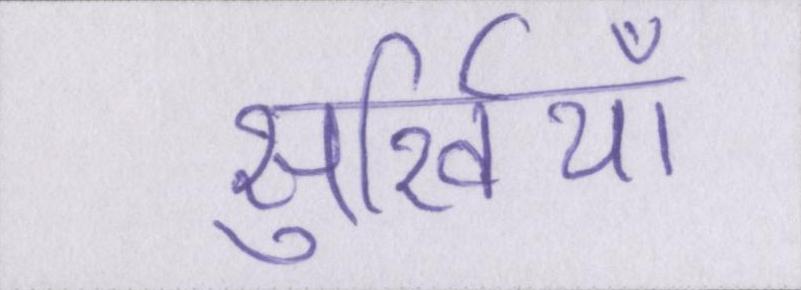 सुर्खियाँ